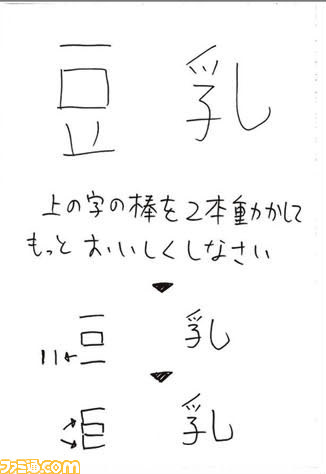 豆 乳
上の字の棒を2本動かして
もっと おいしくしなさい
▼
豆 乳
▼
乳
ファミ通.com